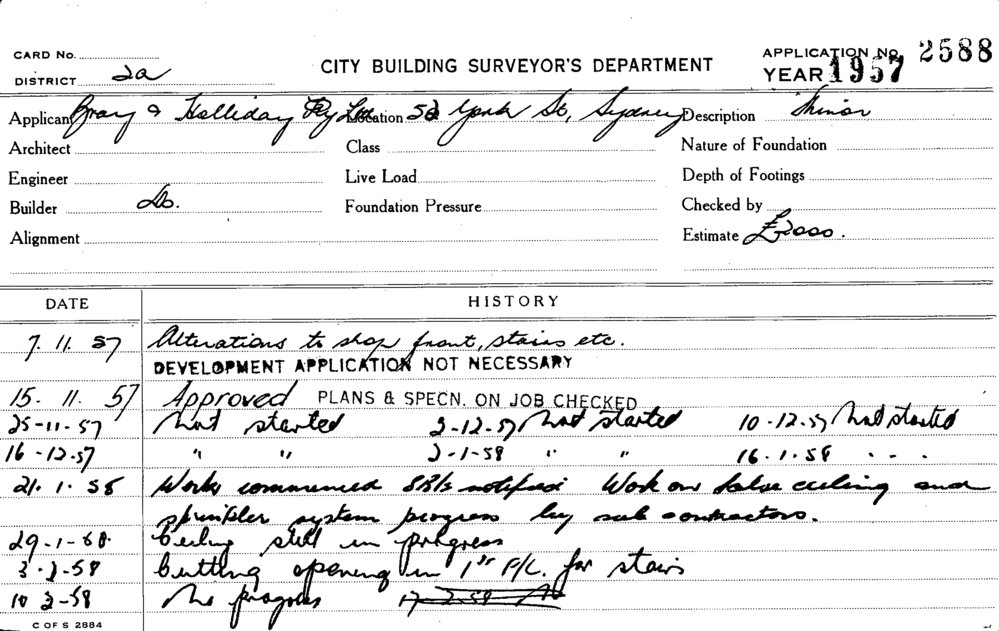 CARD No.
DISTRICT 2a
CITY BUILDING SURVEYOR'S DEPARTMENT
APPLICATION No. 2588
YEAR 1957
Applicant Bray & Holliday Pty Ltd Location 52 York St, Sydney Description Minor
Architect Class Nature of Foundation
Engineer Live Load Depth of Footings
Builder Do. Foundation Pressure Checked by
Alignment Estimate £2000.
DATE HISTORY
7. 11. 57 Alterations to shop front, stairs etc.
DEVELOPMENT APPLICATION NOT NECESSARY
15. 11. 57 Approved PLANS & SPECN. ON JOB CHECKED
25-11-57 Not started 2-12-57 Not started 10-12-57 Not started
16-12-57 " " 2-1-58 " " 16.1.58 - - -
21. 1. 58 Works commenced notified Work on false ceiling and
sprinkler system progress by sub contractors.
29-1-58 Ceiling still in progress
3-2-58 Cutting opening in 1st F/L. for stairs
10 2-58 No progress 17-2-58 No
C OF S 2884